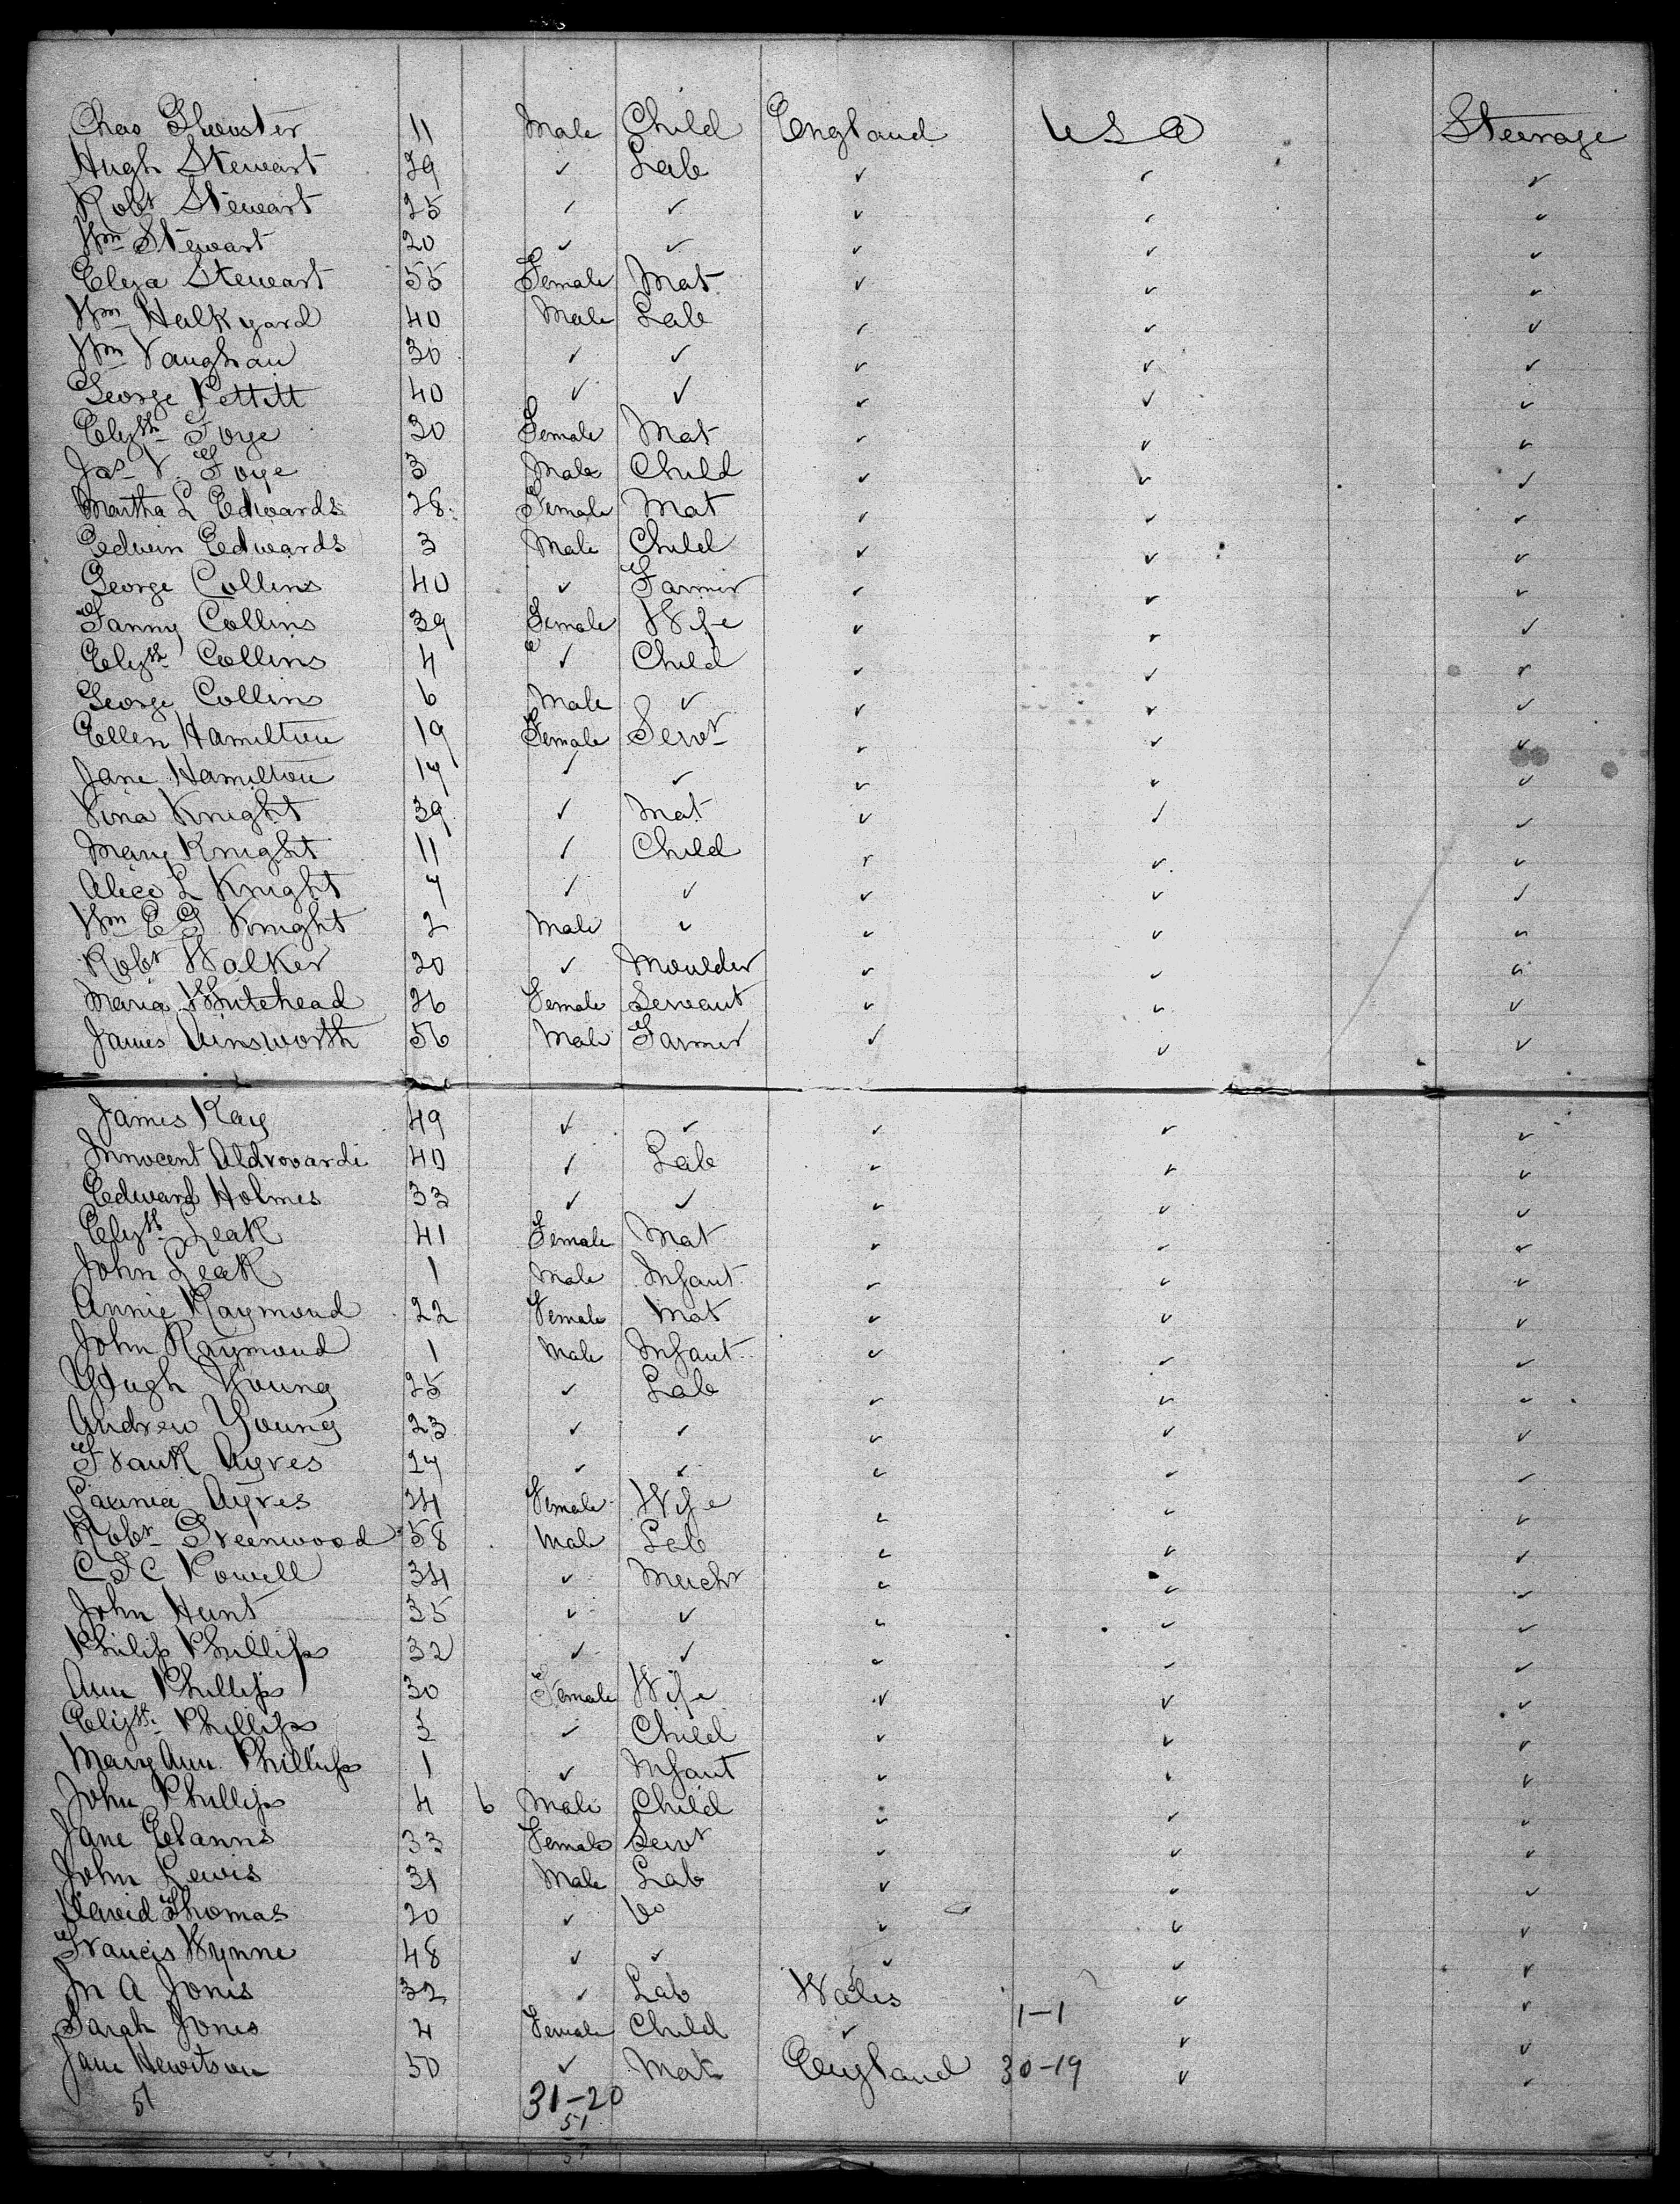 Chas Shewster 11 Male Child England USA Steerage
Hugh Stewart 29 ✓ Lab ✓ ✓ ✓
Robt Stewart 25 ✓ ✓ ✓ ✓ ✓
Wm Stewart 20 ✓ ✓ ✓ ✓ ✓
Eliza Stewart 55 Female Mat ✓ ✓ ✓
Wm Halkyard 40 Male Lab ✓ ✓ ✓
Wm Vaughan 30 ✓ ✓ ✓ ✓ ✓
George Pettitt 40 ✓ ✓ ✓ ✓ ✓
Elizth Foye 30 Female Mat ✓ ✓ ✓
Jas V. Foye 3 Male Child ✓ ✓ ✓
Martha L Edwards 28 Female Mat ✓ ✓ ✓
Edwin Edwards 3 Male Child ✓ ✓ ✓
George Collins 40 ✓ Farmer ✓ ✓ ✓
Fanny Collins 39 Female Wife ✓ ✓ ✓
Elizth Collins 4 ✓ Child ✓ ✓ ✓
George Collins 6 Male ✓ ✓ ✓ ✓
Ellen Hamilton 19 Female Servt ✓ ✓ ✓
Jane Hamilton 17 ✓ ✓ ✓ ✓ ✓
Vina Knight 39 ✓ Mat ✓ ✓ ✓
Mary Knight 11 ✓ Child ✓ ✓ ✓
Alice L Knight 7 ✓ ✓ ✓ ✓ ✓
Wm E G Knight 2 Male ✓ ✓ ✓ ✓
Robt Walker 20 ✓ Moulder ✓ ✓ ✓
Maria Whitehead 26 Female Servant ✓ ✓ ✓
James Ainsworth 56 Male Farmer ✓ ✓ ✓
James Kay 49 ✓ ✓ ✓ ✓ ✓
Innocent Aldrovardi 40 ✓ Lab ✓ ✓ ✓
Edward Holmes 33 ✓ ✓ ✓ ✓ ✓
Elizth Leak 41 Female Mat ✓ ✓ ✓
John Leak 1 Male Infant ✓ ✓ ✓
Annie Raymond 22 Female Mat ✓ ✓ ✓
John Raymond 1 Male Infant ✓ ✓ ✓
Hugh Young 25 ✓ Lab ✓ ✓ ✓
Andrew Young 23 ✓ ✓ ✓ ✓ ✓
Frank Ayres 27 ✓ ✓ ✓ ✓ ✓
Ayres 24 Female Wife ✓ ✓ ✓
Robt Greenwood 58 Male Lab ✓ ✓ ✓
C F C Powell 34 ✓ Mercht ✓ ✓ ✓
John Hunt 35 ✓ ✓ ✓ ✓ ✓
Philip Phillips 32 ✓ ✓ ✓ ✓ ✓
Ann Phillips 30 Female Wife ✓ ✓ ✓
Elizth Phillips 5 ✓ Child ✓ ✓ ✓
Mary Ann Phillips 1 ✓ Infant ✓ ✓ ✓
John Phillips 4 6 Male Child ✓ ✓ ✓
Jane Ebanns 33 Female Servt ✓ ✓ ✓
John Lewis 31 Male Lab ✓ ✓ ✓
David Thomas 20 ✓ Do ✓ ✓ ✓
Francis Wynne 48 ✓ ✓ ✓ ✓ ✓
Jn A Jones 32 ✓ Lab Wales ✓ ✓
Sarah Jones 4 Female Child ✓ 1-1 ✓ ✓
Jane Hewitson 50 ✓ Mat England 30-19 ✓ ✓
51 31-20
51